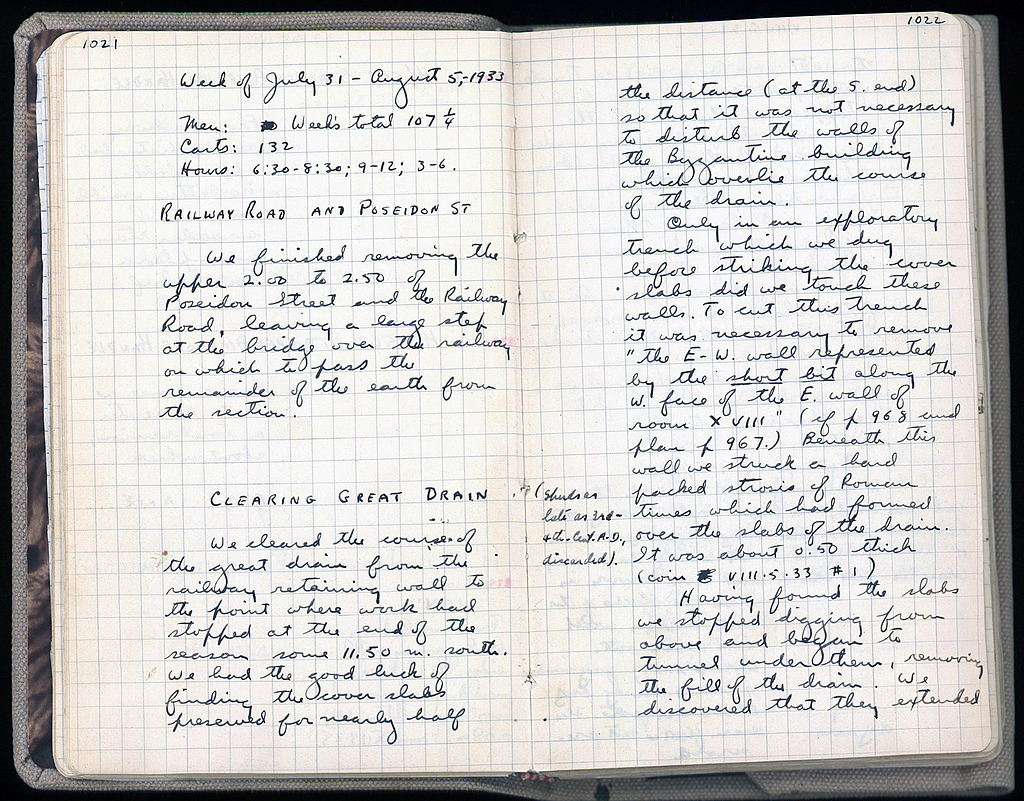 1021
Week of July 31 - August 5, 1933
Men: Week's total 107 1/4
Carts: 132
Hours: 6:30-8:30; 9-12; 3-6.
RAILWAY ROAD AND POSEIDON ST
We finished removing the
upper 2.00 to 2.50 of
Poseidon Street and the Railway
Road, leaving a large step
at the bridge over the railway
on which to pass the
remainder of the earth from
the section.
CLEARING GREAT DRAIN
We cleared the course of
the great drain from the
railway retaining wall to
the point where work had
stopped at the end of the
season some 11.50 m. south.
We had the good luck of
finding the cover slabs
preserved for nearly half
1022
the distance (at the S. end)
so that it was not necessary
to disturb the walls of
the Byzantine building
which overlie the course
of the drain.
Only in an exploratory
trench which we dug
before striking the cover
slabs did we touch these
walls. To cut this trench
it was necessary to remove
"the E-W. wall represented
by the short bit along the
W. face of the E. wall of
room XVIII" (cf p 968 and
plan p 967.) Beneath this
wall we struck a hard
packed strosis of Roman
times which had formed
over the slabs of the drain.
It was about 0.50 thick
(coin VIII.5.33 #1)
(Sherds as
late as 3rd-
4th Cent. A.D.,
discarded).
Having found the slabs
we stopped digging from
above and began to
tunnel under them, removing
the fill of the drain. We
discovered that they extended